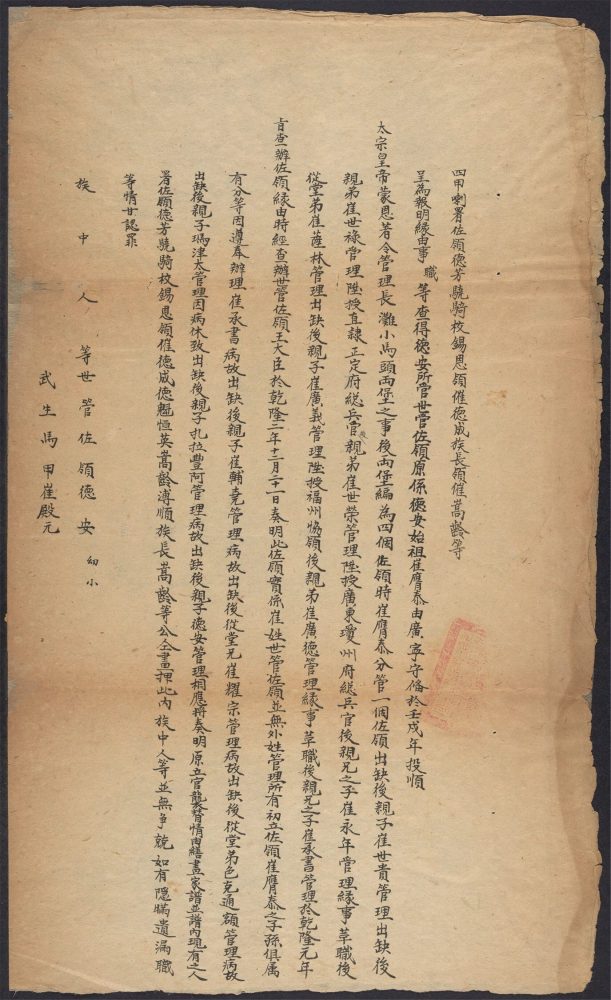 四甲喇署佐領德芳驍騎校錫恩領催德成族長領催嵩齡等
呈為報明緣由事職等查得德安所管世管佐領原係德安始祖崔膺泰由廣寧守俻於壬戌年投順
太宗皇帝蒙恩著令管理長灘小馬頭両堡之事後両堡編為四個佐領時崔膺泰分管一個佐領出缺後親子崔世貴管理出缺後
親弟崔世祿管理陞授直隷正定府総兵官後親弟崔世榮管理陞授廣東瓊州府総兵官後親兄之子崔永年管理緣事革職後
從堂弟崔蔭林管理出缺後親子崔廣義管理陞授福州協領後親弟崔廣德管理緣事革職後親兄之子崔承書管理於乾隆元年
旨查辦佐領緣由時經查辦世管佐領王大臣於乾隆二年十二月二十一日奏明此佐領實係崔姓世管佐領並無外姓管理所有初立佐領崔膺泰之子孫俱属
有分等因遵奉辦理崔承書病故出缺後親子崔輔堯管理病故出缺後從堂兄崔耀宗管理病故出缺後從堂弟色克通額管理病故
出缺後親子瑪津太管理因病休致出缺後親子扎拉豐阿管理病故出缺後親子德安管理相應将奏明原立官襲替情由繕畫家譜並譜內現有之人
署佐領德芳驍騎校錫恩領催德成德魁恒英嵩齡溥順族長嵩齡等公仝畫押此內族中人等並無争競如有隱瞞遺漏職
等情甘認罪
族中人等世管佐領德安 幼小
武生馬甲崔殿元